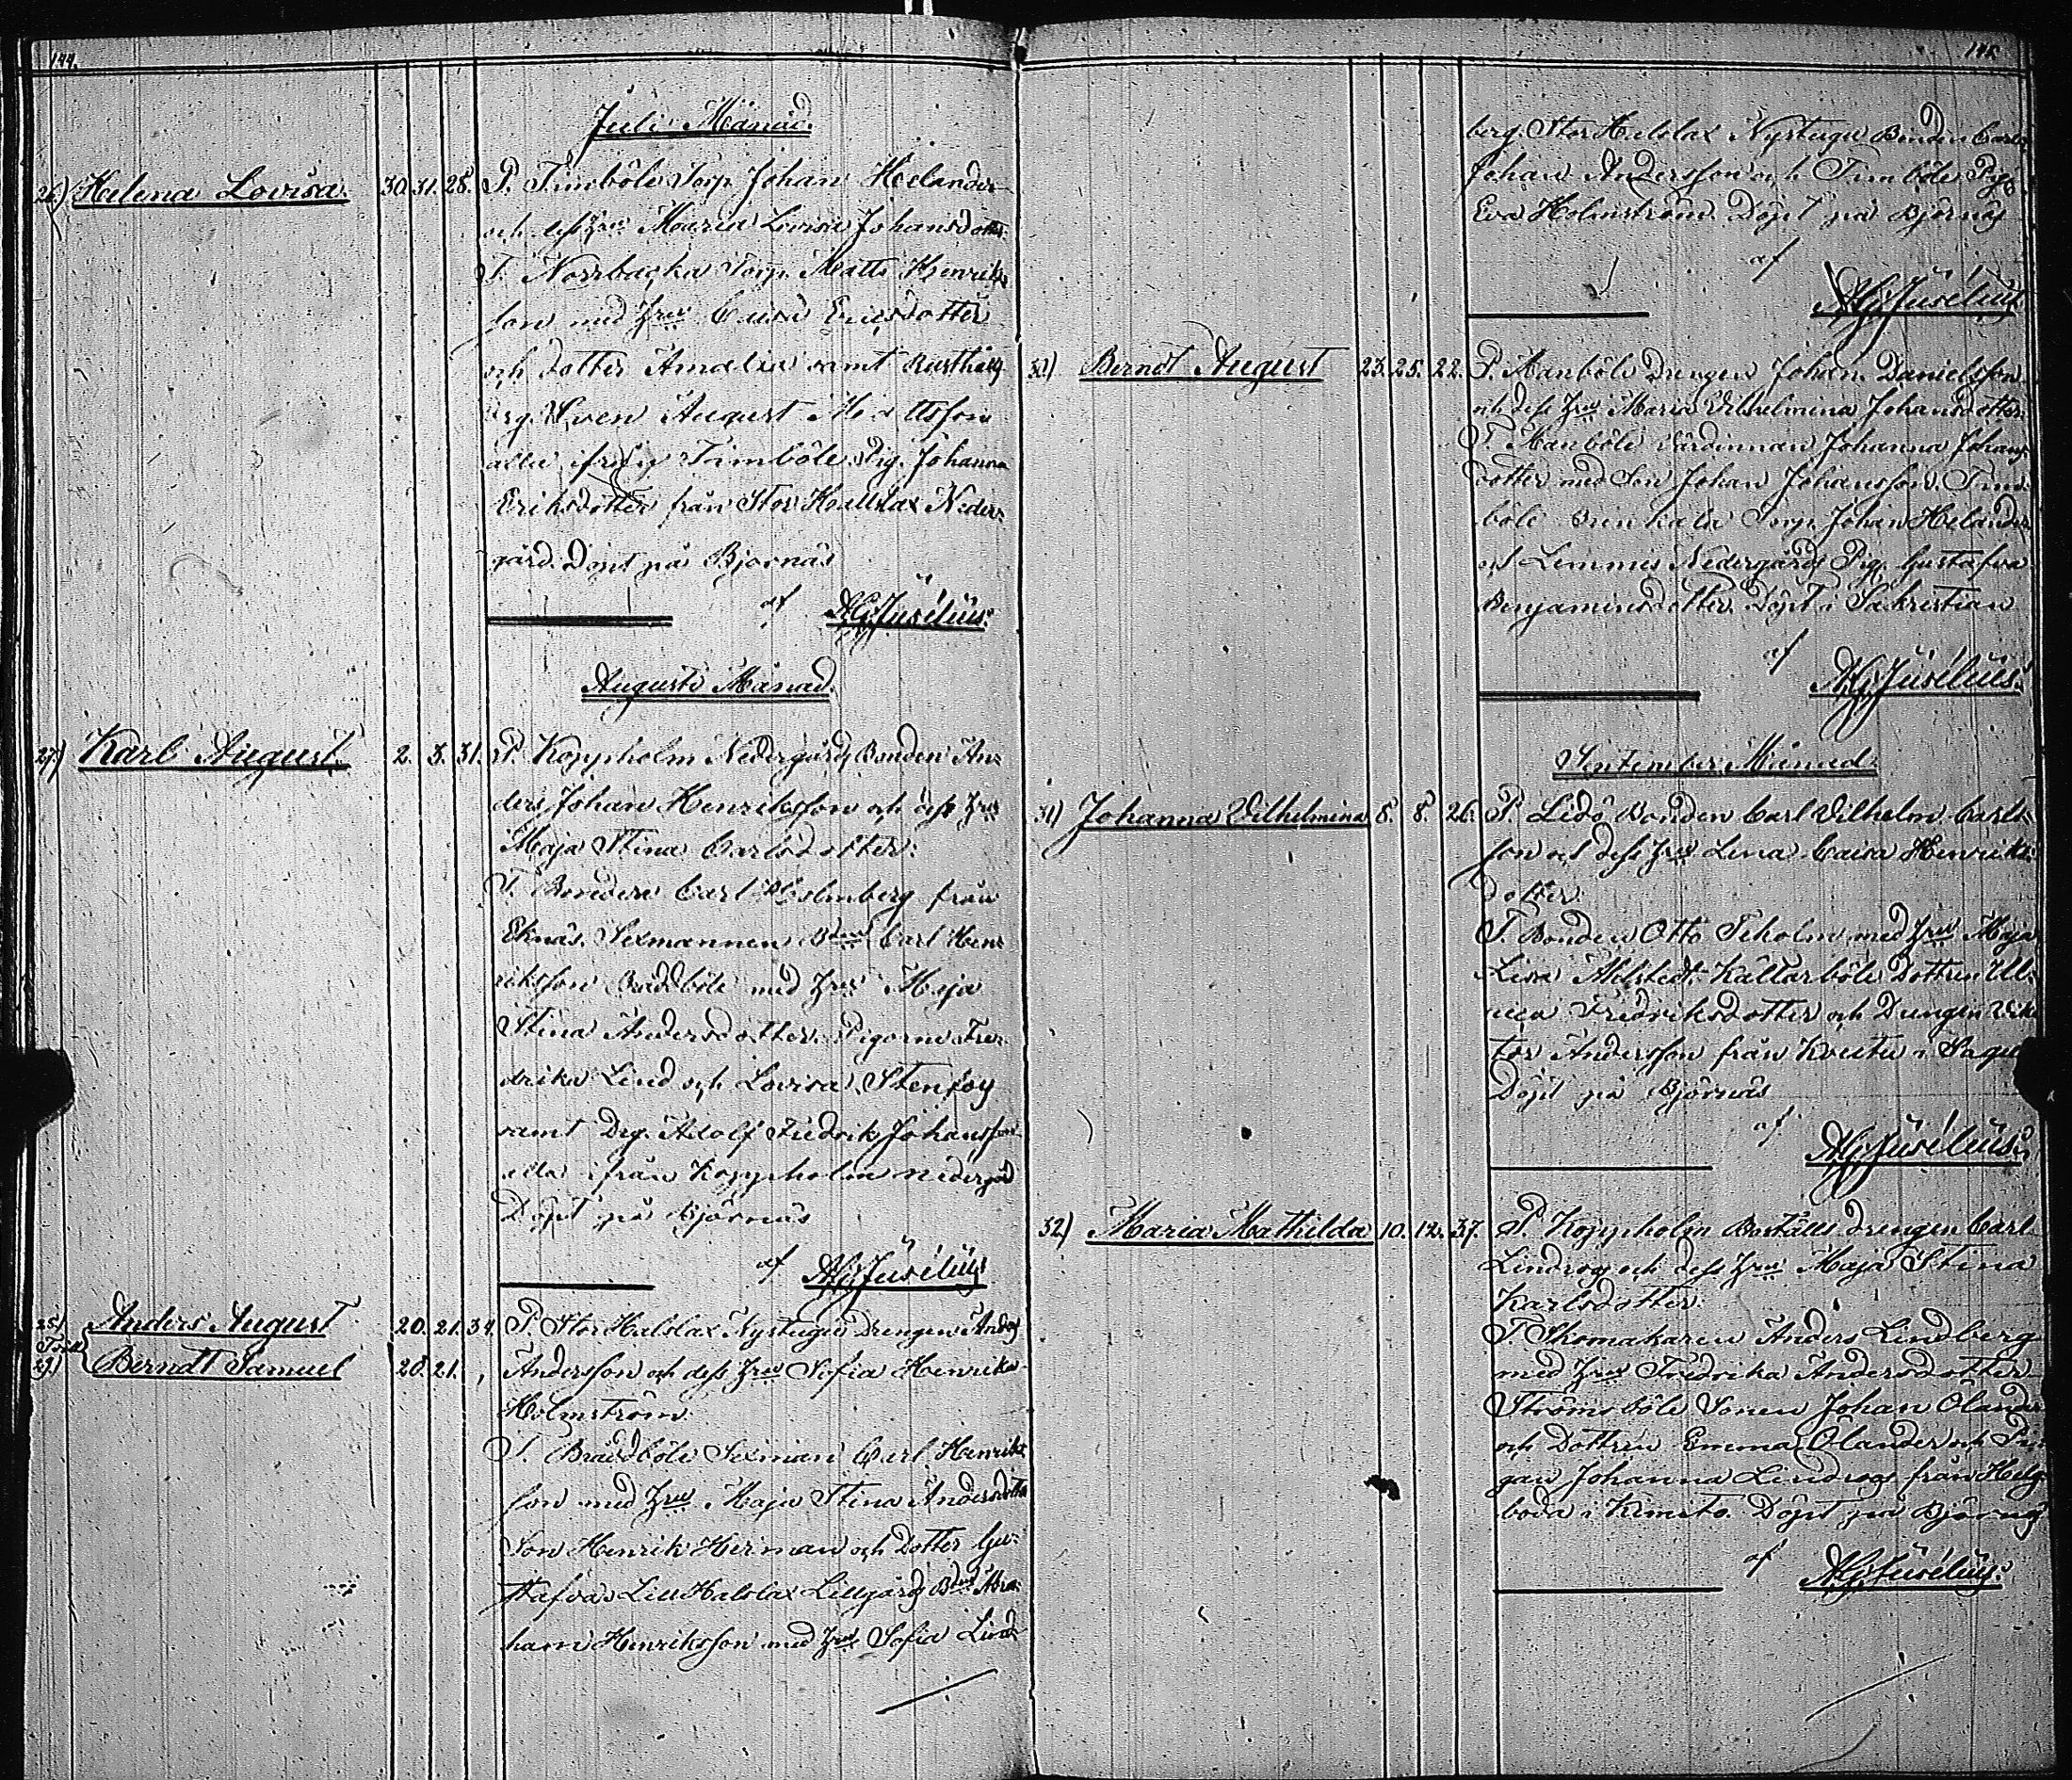 144.
Juli Månad.
26) Helena Lovisa. 30. 31. 28. P. Timböle Torp. Johan Helander
och dess hru Maria Lovisa Johansdotter.
T. Norrbacka Torp. Matts Henriks
son med hru Caisa Ericsdotter
och dotter Amalia samt
August Mattsson
alla ifrån Timböle. Pig. Johanna
Eriksdotter från Stor Halslax Neder-
gård. Döpt på Björnäs
af AGJusélius.
Augusti Månad.
27.) Karl August. 2. 3. 31. P. Koppholm Nedergårds Bonden An-
ders Johan Henriksson och dess hru
Maja Stina Carlsdotter.
T. Bonden Carl Holmberg från
Eknäs. Sexmannen Carl Hen-
riksson Brådböle med hru Maja
Stina Andersdotter. Pigorne Fre-
drika Lind och Lovisa
samt Drg. Adolf Fredrik Johansson
alla ifrån Koppholm nedergård
Döpt på Björnäs
af AGJusélius
28.) Anders August 20. 21. 34. P. Stor Halslax Nystugu Drengen Anders
29.) Berndt Samuel 20. 21. Andersson och dess hru Sofia Henrika
Holmström.
T. Brådböle Sexman Carl Henriks
son med hru Maja Stina Andersdotter
Son Henrik Herman och Dotter Gu-
stafva. Lill Halslax Lillgårds Abra-
ham Henriksson med hru Sofia Lind-
145.
berg. Stor Halslax Nystugu Bonden Carl
Johan Andersson och Timböle Pig.
Eva Holmström. Döpt på Björnäs
af
AGJusélius
30) Berndt August 23. 25. 22. P. Manböle Drengen Johan Danielsson
och dess hru Maria Vilhelmina Johansdotter.
T. Manböle Värdinnan Johanna Johans
dotter med Son Johan Johansson. Tim-
böle Torp. Johan Helander
och Lemmes Nedergårds Pig. Gustafva
Benjaminsdotter. Döpt i Sakristian
af
AGJusélius.
September Månad.
31) Johanna Vilhelmina 8. 8. 26. P. Lidö Bonden Carl Vilhelm Carls-
son och dess hru Lena Caisa Henriks-
dotter.
T. Bonden Otto med hru Maja
Lisa Källarböle Dottren Ul-
rica Fredriksdotter och Drengen Vik-
tor Andersson från i Sagu
Döpt på Björnäs
af
AGJusélius.
32.) Maria Mathilda 10. 12. 37. P. Koppholm Boställs drengen Carl
Lindroos och dess hru Maja Stina
Karlsdotter.
T. Skomakaren Anders Lindberg
med hru Fredrika Andersdotter
Strömsböle Sonen Johan Ölander
och Dottren Emma Ölander och Pi-
gan Johanna Lindroos från Helg-
boda i Kimito. Döpt på Björnäs
af
AGJusélius.